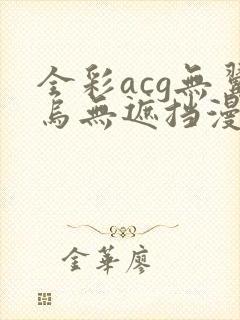 全彩acg無翼
烏無遮挡漫
金華廖